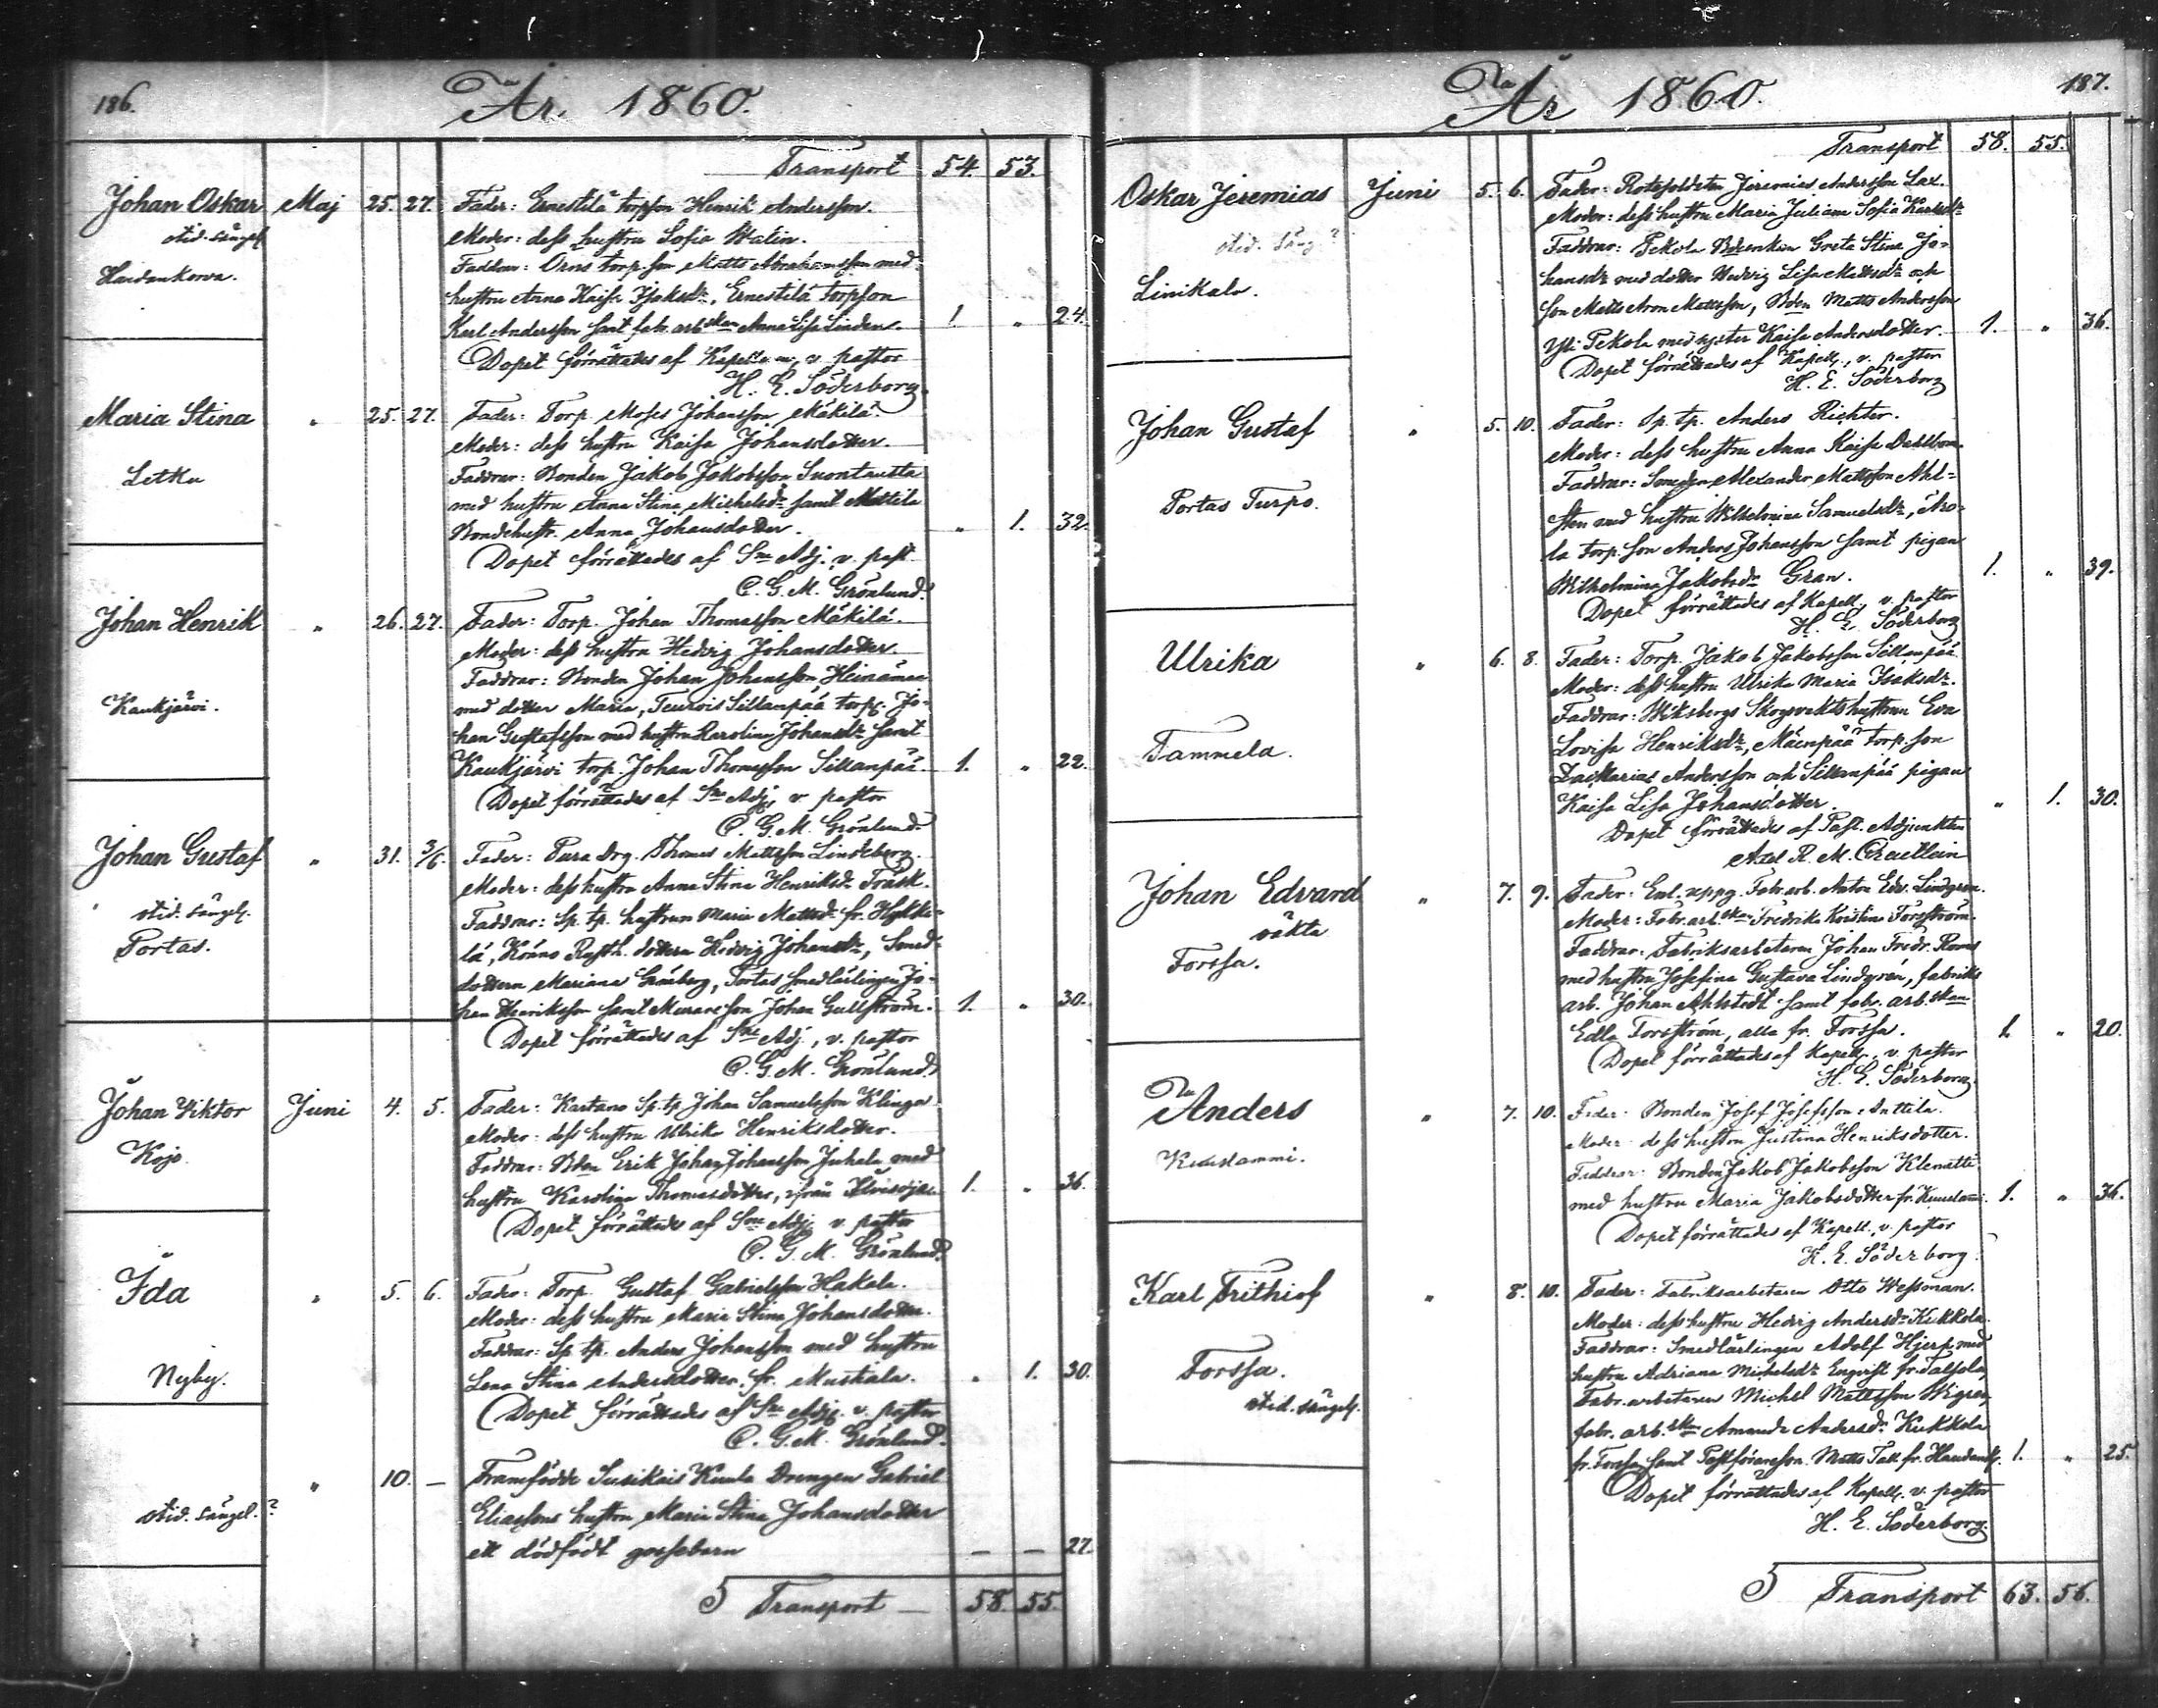 186.
År 1860.
Transport 54. 53.
Johan Oskar Maj 25. 27. Fader: Ernestilä torpson Henrik Andersson.
Moder: dess hustru Sofia Walin.
Faddrar: Orns torp.son Matts Abrahamsson med
hustru Anna Kaisa Isaksdr, Ernestilä torpson
Karl Andersson samt fabr. arbskan Anna Lisa Linden. 1. " 24.
Dopet förrättades af Kapell. v. pastor
H. E. Söderborg.
Maria Stina " 25. 27. Fader: Torp. Moses Johansson Mäkilä.
Letku
Moder: dess hustru Kaisa Johansdotter.
Faddrar: Bonden Jakob Jakobsson Suontausta
med hustru Anna Stina Michelsdr samt Mattila
Bondehustr. Anna Johansdotter. " 1. 32.
Dopet förrättades af Sne Adj. v. past.
C. G. M. Grönlund.
Johan Henrik " 26. 27. Fader: Torp. Johan Thomasson Mäkilä.
Kaukjärvi.
Moder: dess hustru Hedvig Johansdotter.
Faddrar: Bonden Johan Johansson Heinämaa
med dotter Maria, Teurois Sillanpää torp. Jo-
han Gustafsson med hustru Karolina Johansdr samt
Kaukjärvi torp. Johan Thomasson Sillanpää. 1. " 22.
Dopet förrättades af Sne Adj. v. pastor
C. G. M. Grönlund.
Johan Gustaf " 31. 3/6. Fader: Pura Drg. Thomas Mattsson Lindeberg.
Portas.
Moder: dess hustru Anna Stina Henriksdr Träsk.
Faddrar: Sp. tp. hustrun Maria Mattsdr fr. Hykki-
lä, Köuno Rusth. dottern Hedvig Johansdr, Smed-
dottern Mariana Grönberg, Portas Smedlärlingen Jo-
han Henriksson samt Murareson Johan Gullström. 1. " 30.
Dopet förrättades af Sne Adj., v. pastor
C. G. M. Grönlund.
Johan Viktor Juni 4. 5. Fader: Kartano Sp. tp. Johan Samuelsson Klinga.
Kojo.
Moder: dess hustru Ulrika Henriksdotter.
Faddrar: Bden Erik Johan Johansson Juhala med
hustru Karolina Thomasdotter, ifrån 1. " 36.
Dopet förrättades af Sne Adj. v. pastor
C. G. M. Grönlund.
Ida " 5. 6. Fader: Torp. Gustaf Gabrielsson Hakala.
Nyby.
Moder: dess hustru Maria Stina Johansdotter.
Faddrar: Sp. tp. Anders Johansson med hustru
Lena Stina Andersdotter fr. Mustiala. " 1. 30.
Dopet förrättades af Sne Adj. v. pastor
C. G. M. Grönlund.
" 10. — Framfödde Susikais Kuula Drengen Gabriel
Eliassons hustru Maria Stina Johansdotter
ett dödfödt gossebarn — — 27.
5 Transport — 58. 55.
187.
År 1860.
Transport 58. 55.
Oskar Jeremias Juni 5. 6. Fader: Rotesoldaten Jeremias Andersson Lax.
Linikala.
Moder: dess hustru Maria Juliana Sofia Karlsdr
Faddrar: Pekola Bdeenkan Greta Stina Jo-
hansdr med dotter Hedvig Lisa Mattsdr och
son Matts Aron Mattsson, Bden Matts Andersson
Yli Pekola med syster Kaisa Andersdotter. 1. " 36.
Dopet förrättades af Kapell., v. pastor
H. E. Söderborg
Johan Gustaf " 5. 10. Fader: Sp. tp. Anders Richter.
Portas Turpo.
Moder: dess hustru Anna Kaisa Dahlbom.
Faddrar: Smeden Alexander Mattsson Ahl-
sten med hustru Wilhelmina Samuelsdr, Aro-
la torp. son Anders Johansson samt pigan
Wilhelmina Jakobsdr Gran. 1. " 39.
Dopet förrättades af Kapell., v. pastor
H. E. Söderborg
Ulrika " 6. 8. Fader: Torp. Jakob Jakobsson Sillanpää.
Tammela.
Moder: dess hustru Ulrika Maria Isaksdr.
Faddrar: Wiksbergs Skogsvaktshustrun Eva
Lovisa Henriksdr, Mäenpää torp. son
Zackarias Andersson och Sillanpää pigan
Kaisa Lisa Johansdotter. " 1. 30.
Dopet förrättades af Past. Adjunkten
Axel R. M.
Johan Edvard " 7. 9. Fader: Enl. uppg. Fabr. arb. Anton Edv. Lindgren.
oäkta
Forssa.
Moder: Fabr. arb.skan Fredrika Kristina Forsström.
Faddrar: Fabriksarbetaren Johan Fredr. Roms
med hustru Josefina Gustava Lindgren, fabriks
arb. Johan Ahlstedt samt fabr. arb.skan
Edla Forsström, alla fr. Forssa. 1. " 20.
Dopet förrättades af Kapell., v. pastor
H. E. Söderborg.
Anders " 7. 10. Fader: Bonden Josef Josefsson Anttila.
Kuuslammi.
Moder: dess hustru Justina Henriksdotter.
Faddrar: Bonden Jakob Jakobsson Klenatti
med hustru Maria Jakobsdotter fr. Kuuslammi. 1. " 36.
Dopet förrättades af Kapell. v. pastor
H. E. Söderborg.
Karl Frithiof " 8. 10. Fader: Fabriksarbetaren Otto Wessman.
Forssa.
Moder: dess hustru Hedvig Andersdr Kukkola.
Faddrar: Smedlärlingen Adolf Hjerp med
hustru Adriana Michelsdr Engvist fr. Talsola,
Fabr. arbetaren Michel Mattsson Wigren,
fabr. arb.skan Amanda Andersdr Kukkola
fr. Forssa, samt Postföraresson Matts Tall fr. Haudank. 1. " 25.
Dopet förrättades af Kapell. v. pastor
H. E. Söderborg.
5 Transport 63. 56.